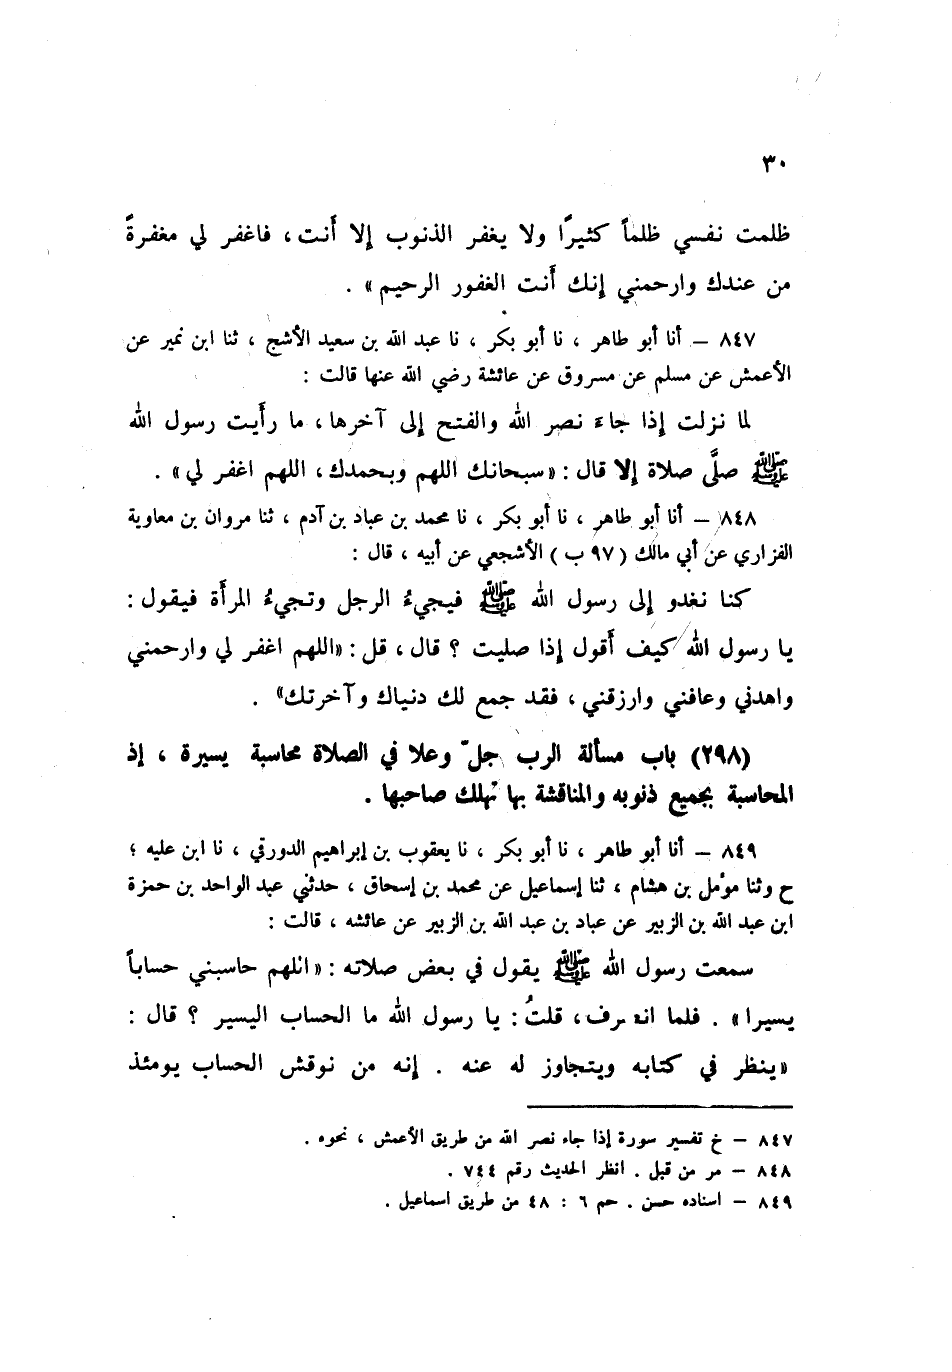 ٣٠
ظلمت نفسي ظلماً كثيرًا ولا يغفر الذنوب إلا أَنت، فاغفر لي مغفرةً
من عندك وارحمني إنك أَنت الغفور الرحيم» .
٨٤٧ – أنا أبو طاهر ، نا أبو بكر ، نا عبد الله بن سعيد الأشج ، ثنا ابن نمير عن
الأعمش عن مسلم عن مسروق عن عائشة رضي الله عنها قالت :
لما نزلت إذا جاءَ نصر الله والفتح إلى آخرها، ما رأَيت رسول الله
ﷺ صلَّى صلاة إلا قال : «سبحانك اللهم وبحمدك، اللهم اغفر لي» .
٨٤٨ – أنا أبو طاهر ، نا أبو بكر ، نا محمد بن عباد بن آدم ، ثنا مروان بن معاوية
الفزاري عن أبي مالك ( ٩٧ ب ) الأشجعي عن أبيه ، قال :
كنا نغدو إلى رسول الله ﷺ فيجيءُ الرجل وتجيءُ المرأَة فيقول :
يا رسول الله كيف أَقول إذا صليت ؟ قال ، قل : «اللهم اغفر لي وارحمني
واهدني وعافني وارزقني ، فقد جمع لك دنياك وآخرتك» .
(٢٩٨) باب مسألة الرب جلّ وعلا في الصلاة محاسبة يسيرة ، إذ
المحاسبة بجميع ذنوبه والمناقشة بها تهلك صاحبها .
٨٤٩ – أنا أبو طاهر ، نا أبو بكر ، نا يعقوب بن إبراهيم الدورقي ، نا ابن عليه ؛
ح وثنا مؤمل بن هشام ، ثنا إسماعيل عن محمد بن إسحاق ، حدثني عبد الواحد بن حمزة
ابن عبد الله بن الزبير عن عباد بن عبد الله بن الزبير عن عائشه ، قالت :
سمعت رسول الله ﷺ يقول في بعض صلاته : «اللهم حاسبني حساباً
يسيرا» . فلما انصرف، قلتُ : يا رسول الله ما الحساب اليسير ؟ قال :
«ينظر في كتابه ويتجاوز له عنه . إنه من نوقش الحساب يومئذ
٨٤٧ – خ تفسير سورة إذا جاء نصر الله من طريق الأعمش ، نحوه .
٨٤٨ – مر من قبل . انظر الحديث رقم ٧٤٤ .
٨٤٩ – اسناده حسن . حم ٦ : ٤٨ من طريق اسماعيل .